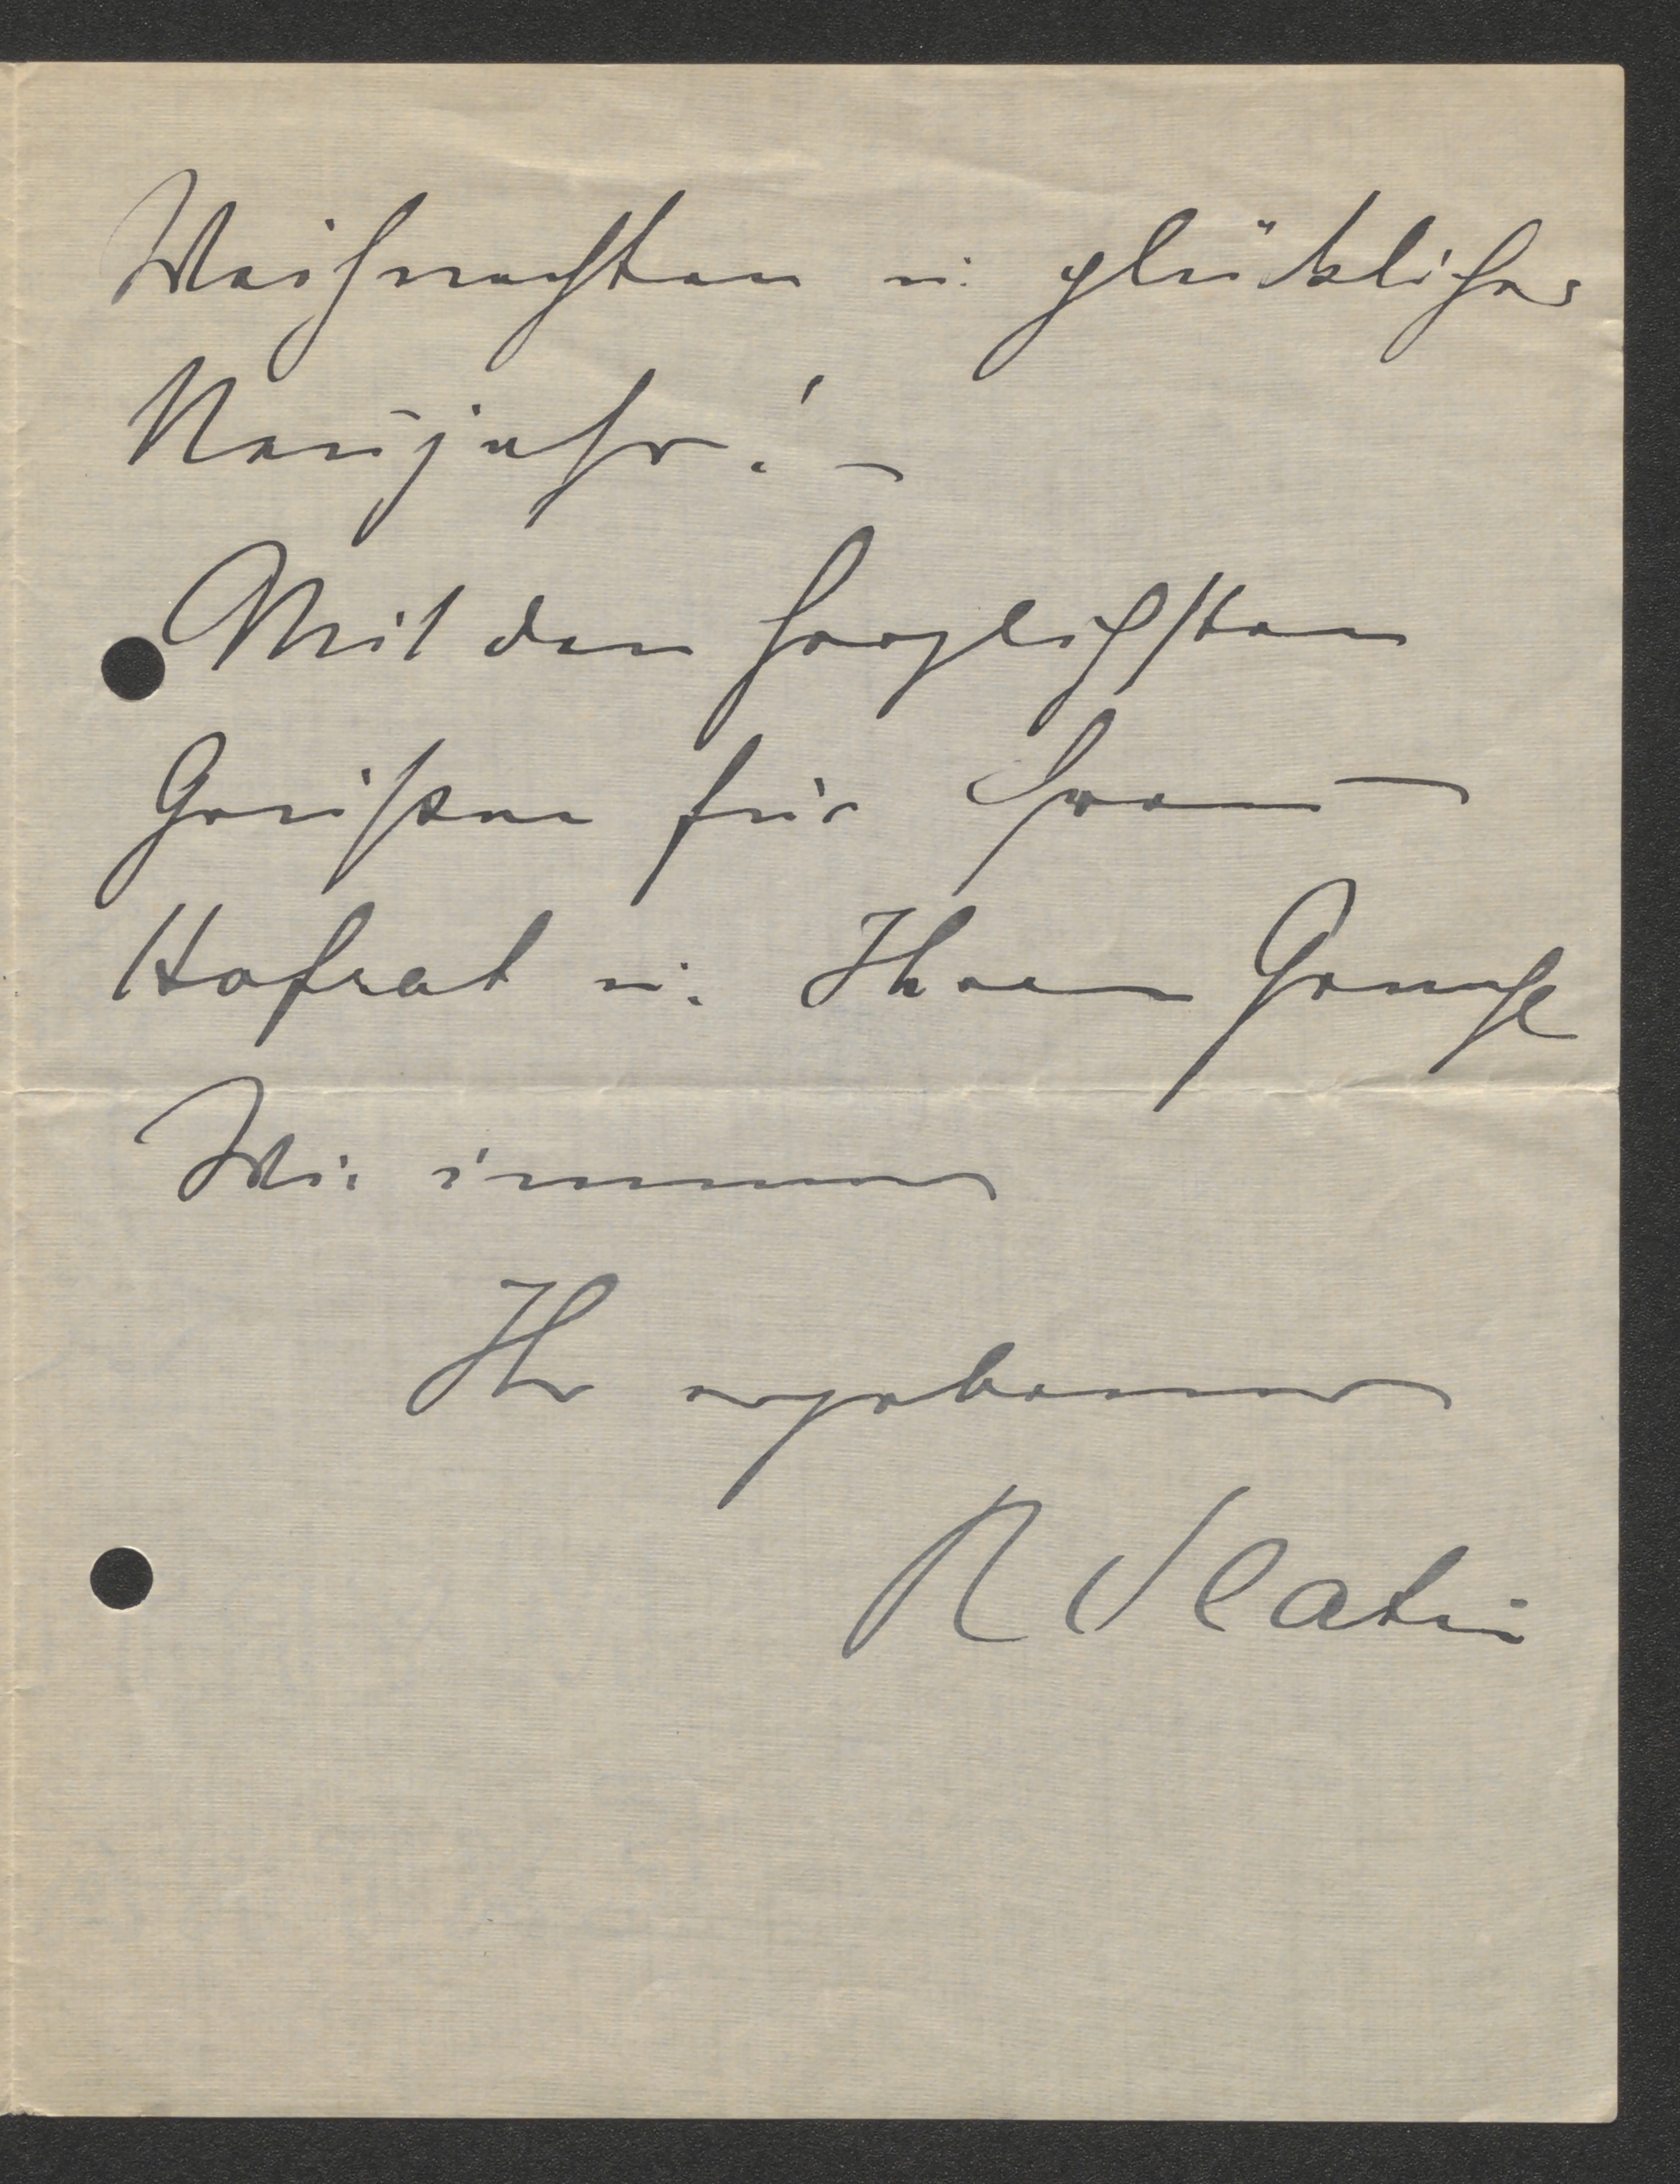 Weihnachten u. glückliches
Neujahr! –
Mit den herzlichsten
Grüßen für Frau
Hofrat u. Ihnen
Wie immer
Ihr ergebener
R Slatin